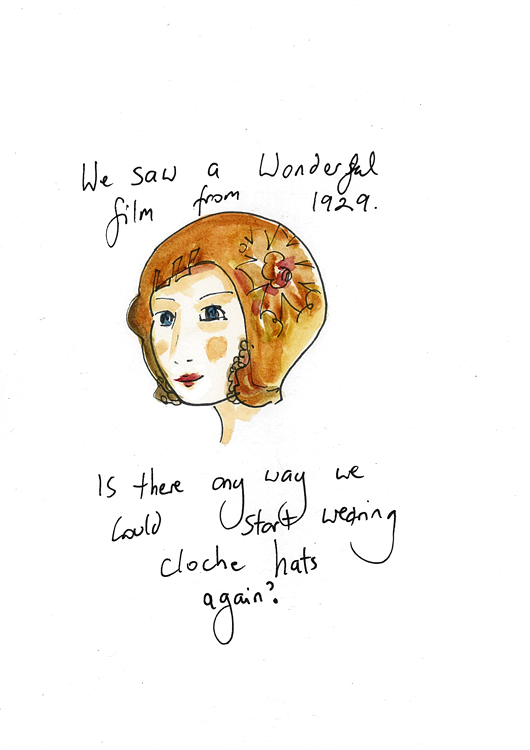 We saw a Wonderful
film from 1929.
Is there any way we
Could start wearing
cloche hats
again?